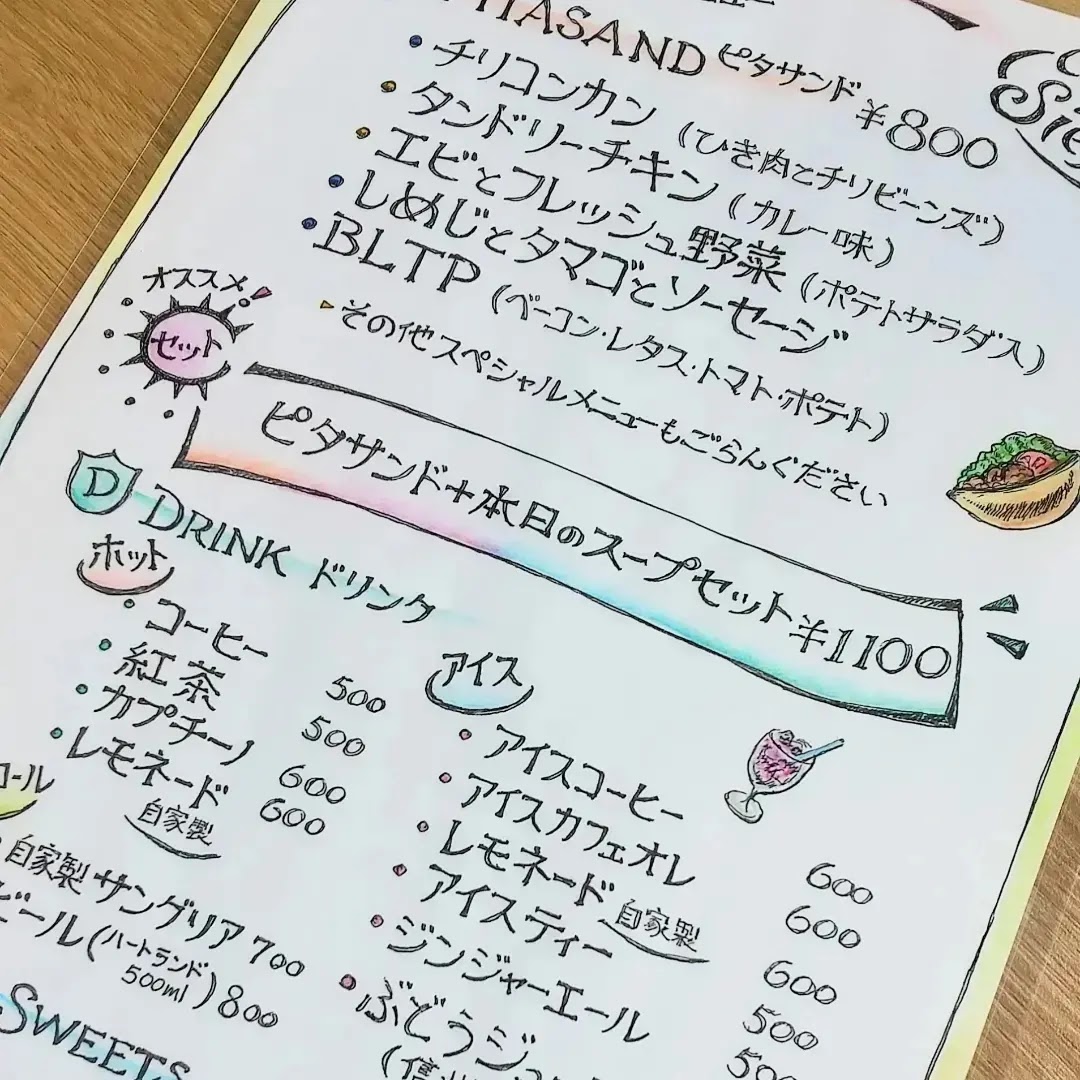 ピタサンド ¥800
・チリコンカン (ひき肉とチリビーンズ)
・タンドリーチキン (カレー味)
・エビとフレッシュ野菜 (ポテトサラダ入)
・しめじとタマゴとソーセージ
・BLTP (ベーコン・レタス・トマト・ポテト)
▸その他スペシャルメニューもごらんください
オススメ
セット
ピタサンド+本日のスープセット ¥1100
D DRINK ドリンク
ホット
・コーヒー 500
・紅茶 500
・カプチーノ 600
・レモネード 自家製 600
アイス
・アイスコーヒー 600
・アイスカフェオレ 600
・レモネード 自家製 600
・アイスティー 500
・ジンジャーエール
・ぶどうジュ
自家製サングリア 700
ビール(ハートランド 500ml) 800
SWEETS